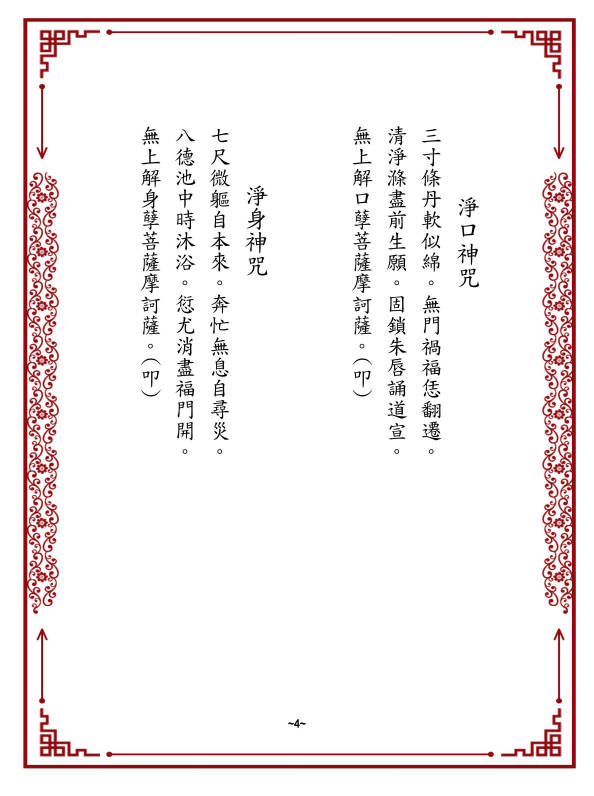 淨口神咒
三寸條丹軟似綿。無門禍福恁翻遷。
清淨滌盡前生願。固鎖朱唇誦道宣。
無上解口孽菩薩摩訶薩。(叩)
淨身神咒
七尺微軀自本來。奔忙無息自尋災。
八德池中時沐浴。愆尤消盡福門開。
無上解身孽菩薩摩訶薩。(叩)
~4~